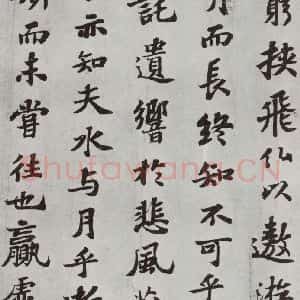 窮挾飛仙以遨遊
月而長終知不可乎
託遺響於悲風蘇
亦知夫水与月乎逝
斯而未嘗往也贏虛
Shufawang.CN